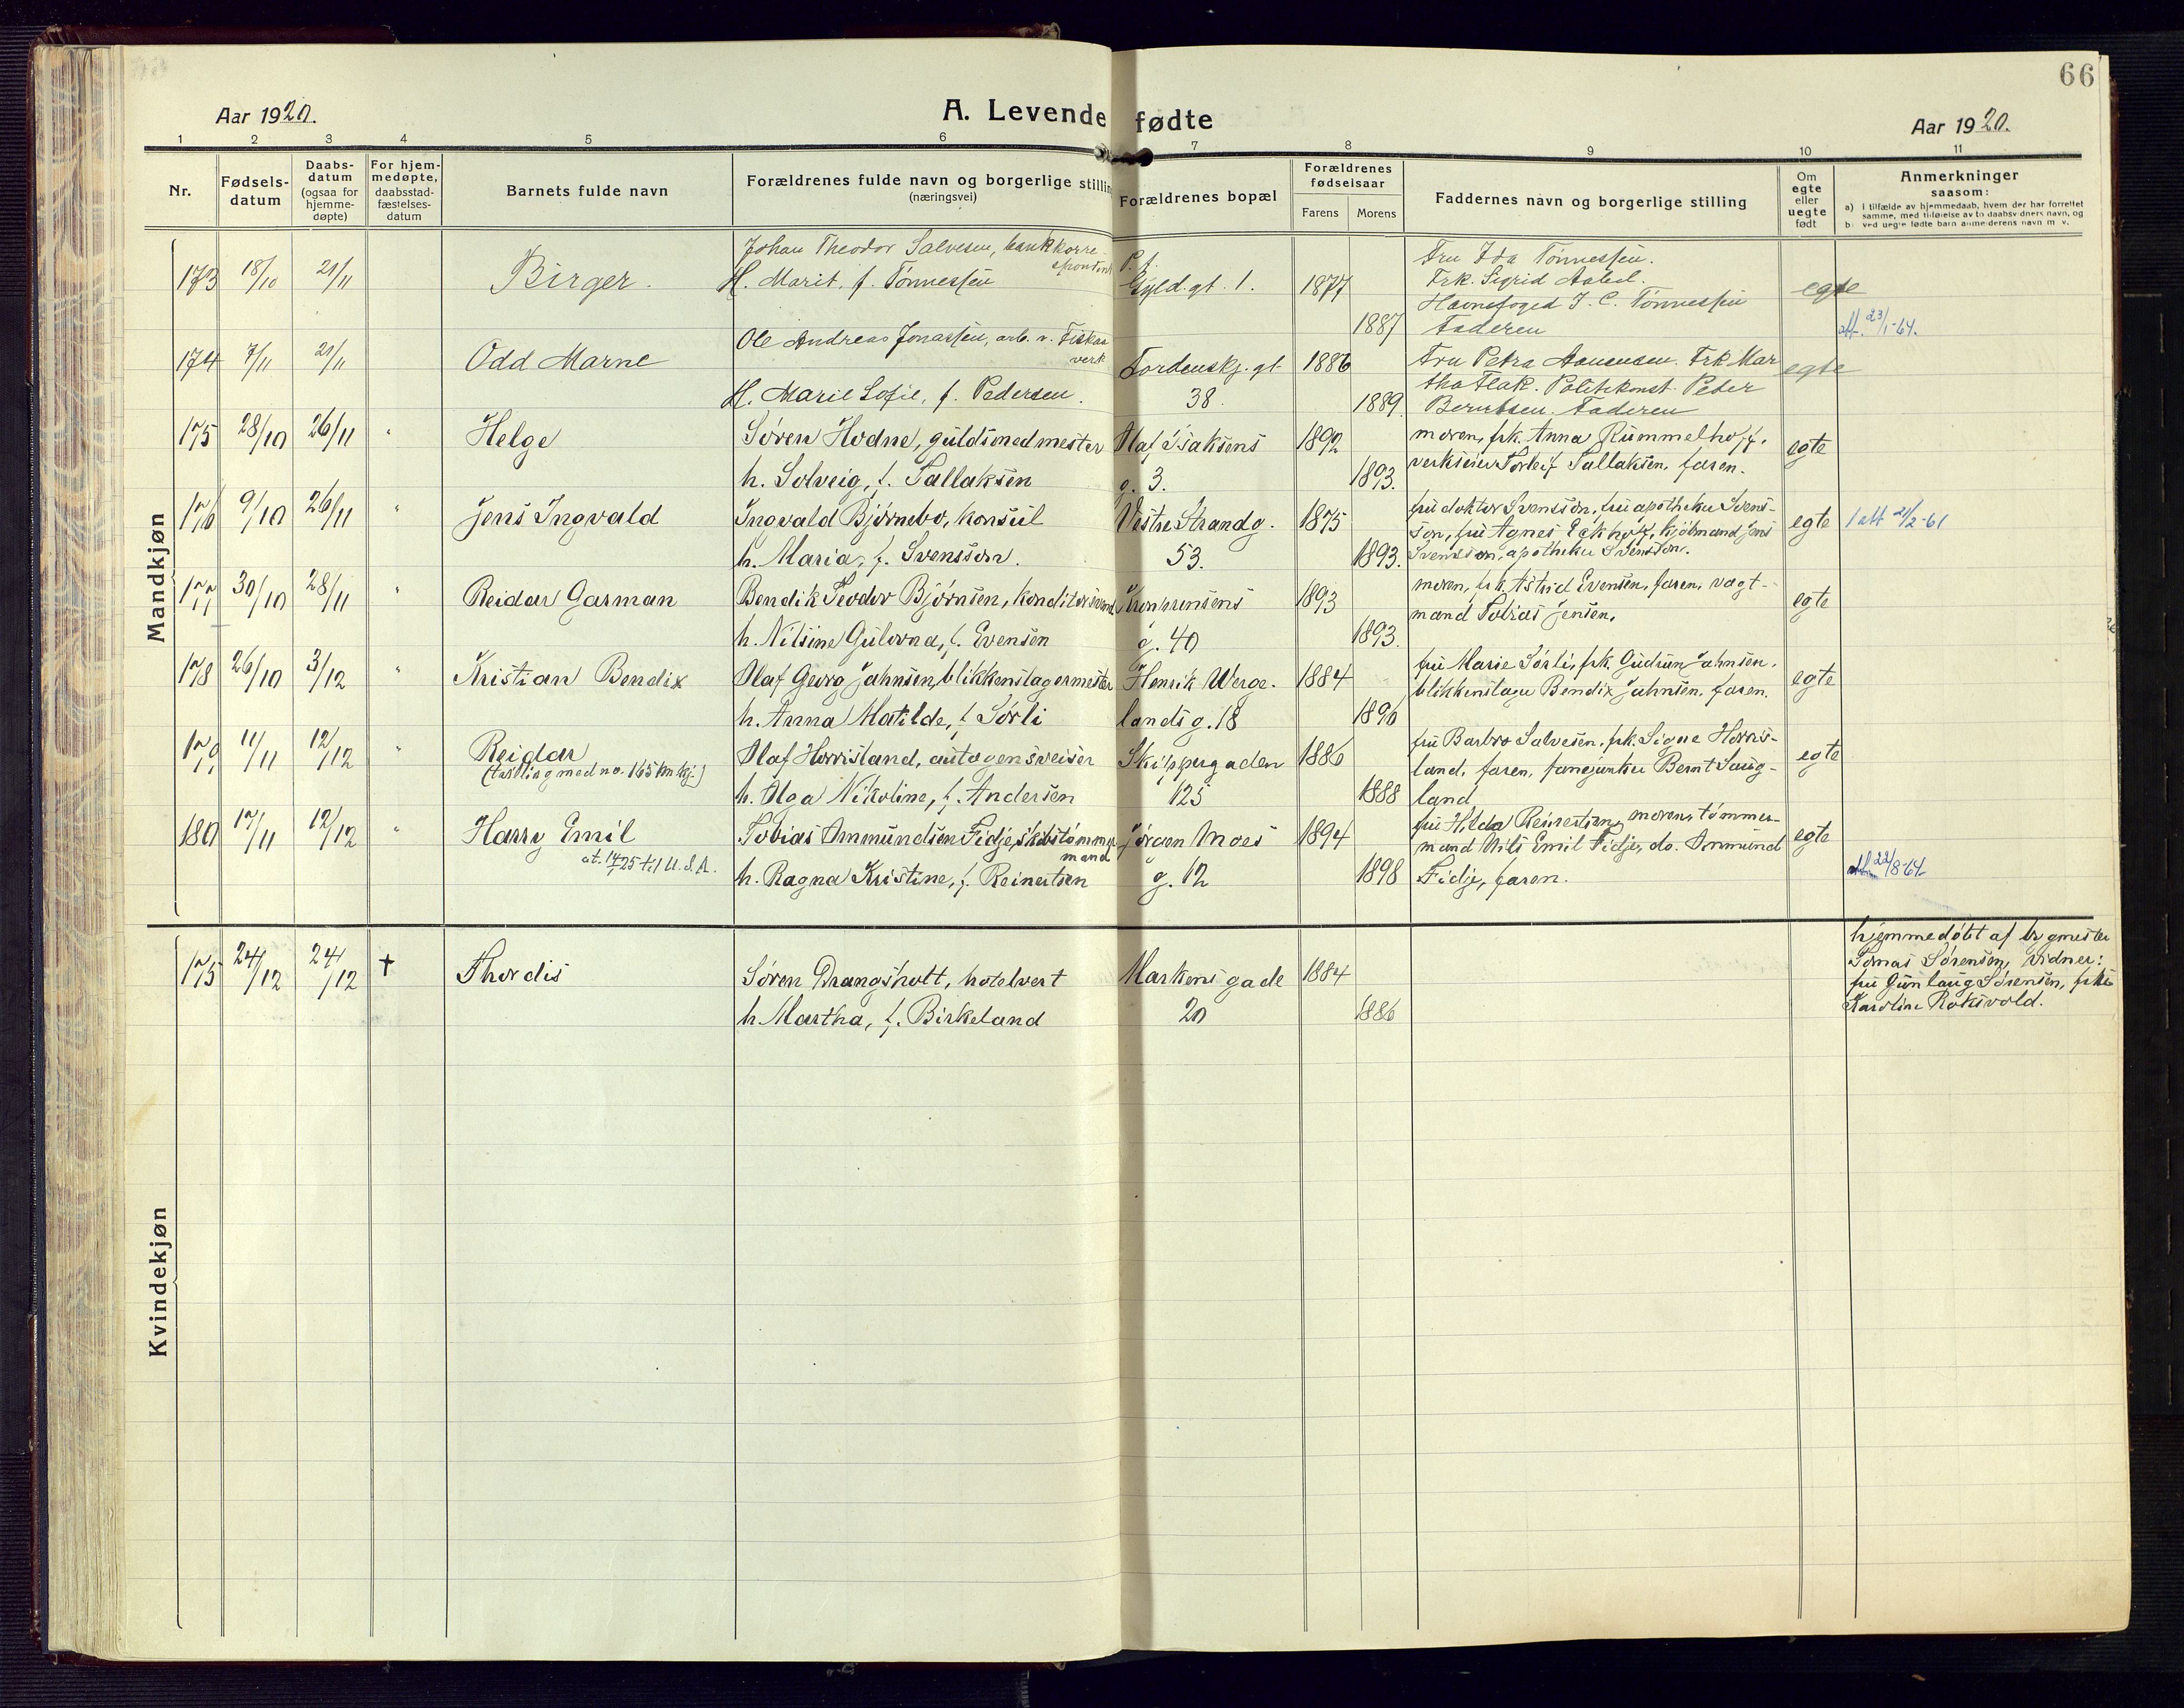 66
Aar 1920.
A. Levende fødte
Aar 1920.
1 2 3 4 5 6 7 8 9 10 11
Nr.
Fødsels-
datum
Daabs-
datum
(ogsaa for
hjemme-
døpte)
For hjem-
medøpte,
daabsstad-
fæstelses-
datum
Barnets fulde navn
Forældrenes fulde navn og borgerlige stilling
(næringsvei)
Forældrenes bopæl
Forældrenes
fødselsaar
Farens Morens
Faddernes navn og borgerlige stilling
Om
egte
eller
uegte
født
Anmerkninger
saasom:
a) i tilfælde av hjemmedaab, hvem der har forrettet
samme, med tilføielse av to daabsvidners navn, og
b) ved uegte fødte barn anmelderens navn m. v.
Mandkjøn
173 18/10 21/11 Birger.
Johan Theodor Salvesen, bankkorre-
spondent
H. Marit, f. Tønnessen
Gyld. gt. 1. 1877
1887
Fru Ida Tønnessen.
Frk. Sigrid Aabel.
Havnefoged J. C. Tønnessen
Faderen
egte
att. 23/1-64.
174 7/11 21/11 Odd Marne
Ole Andreas Jonassen, arb. v. Fiskaa
verk
H. Marie Sofie, f. Pedersen.
Tordenskj. gt.
38.
1886
1889.
Fru Petra Aanensen. Frk Mar
tha Flak. Politikonst. Peder
Berntsen. Faderen
egte
175 28/10 26/11 " Helge
Søren Hodne, guldsmedmester
h. Solveig, f. Tallaksen
Olaf Isaksens
g. 3.
1892
1893.
moren, frk. Anna Rummelhoff,
verkseier Torleif Tallaksen, faren.
egte
176 9/10 26/11 " Jens Ingvald
Ingvald Bjørnebo, konsul
h. Maria, f. Svensson.
Vestre Strandg.
53.
1875
1893.
fru doktor Svensson, fru apotheker Svens-
son, fru Agnes Eckhoff, kjøbmand Jens
Svensson, apotheker Svensson.
egte
1 att 21/2-61
177 30/10 28/11 " Reidar Garman
Bendik Teodor Bjørnsen, konditorsvend
h. Nilsine Gulovna, f. Evensen
Kronprinsens
g. 40
1893
1893.
moren, frk. Astrid Evensen, faren, vagt-
mand Tobias Jensen.
egte
178 26/10 3/12 " Kristian Bendix
Olaf Georg Jahnsen, blikkenslagermester
h. Anna Matilde, f. Sørli
Henrik Werge-
landsg. 18
1884
1896
fru Marie Sørli, frk. Gudrun Jahnsen,
blikkenslager Bendix Jahnsen, faren.
egte
179 11/11 12/12 " Reidar
(tvilling med no. 165 kv.kj.)
Olaf Horrisland, autogensveiser
h. Olga Nikoline, f. Andersen
Skippergaden
125
1886
1888
fru Barbro Salvesen, frk. Signe Horris-
land, faren, fanejunker Bernt Saug-
land
egte
180 17/11 12/12 " Harry Emil
Tobias Ammundsen Fidje, skibstømmer
mand
h. Ragna Kristine, f. Reinertsen
Jørgen Moes
g. 12
1894
1898
fru Hilda Reinertsen, moren, tømmer-
mand Nils Emil Fidje, do. Ammund
Fidje, faren.
egte
att 22/8-64
Kvindekjøn
175 24/12 24/12 † Thordis
Søren Drangsholt, hotelvert
h. Martha, f. Birkeland
Markensgade
20
1884
1886
hjemmedøbt af bygmester
Tomas Sørensen, vidner:
fru Gunlaug Sørensen, frk.
Karoline Roksvold.